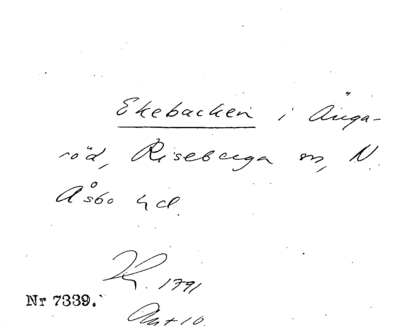 Ekebacken i Änga-
röd, Riseberga sn, N.
Åsbo hd.
Kr. 1791
Nr 7339. Akt 10.